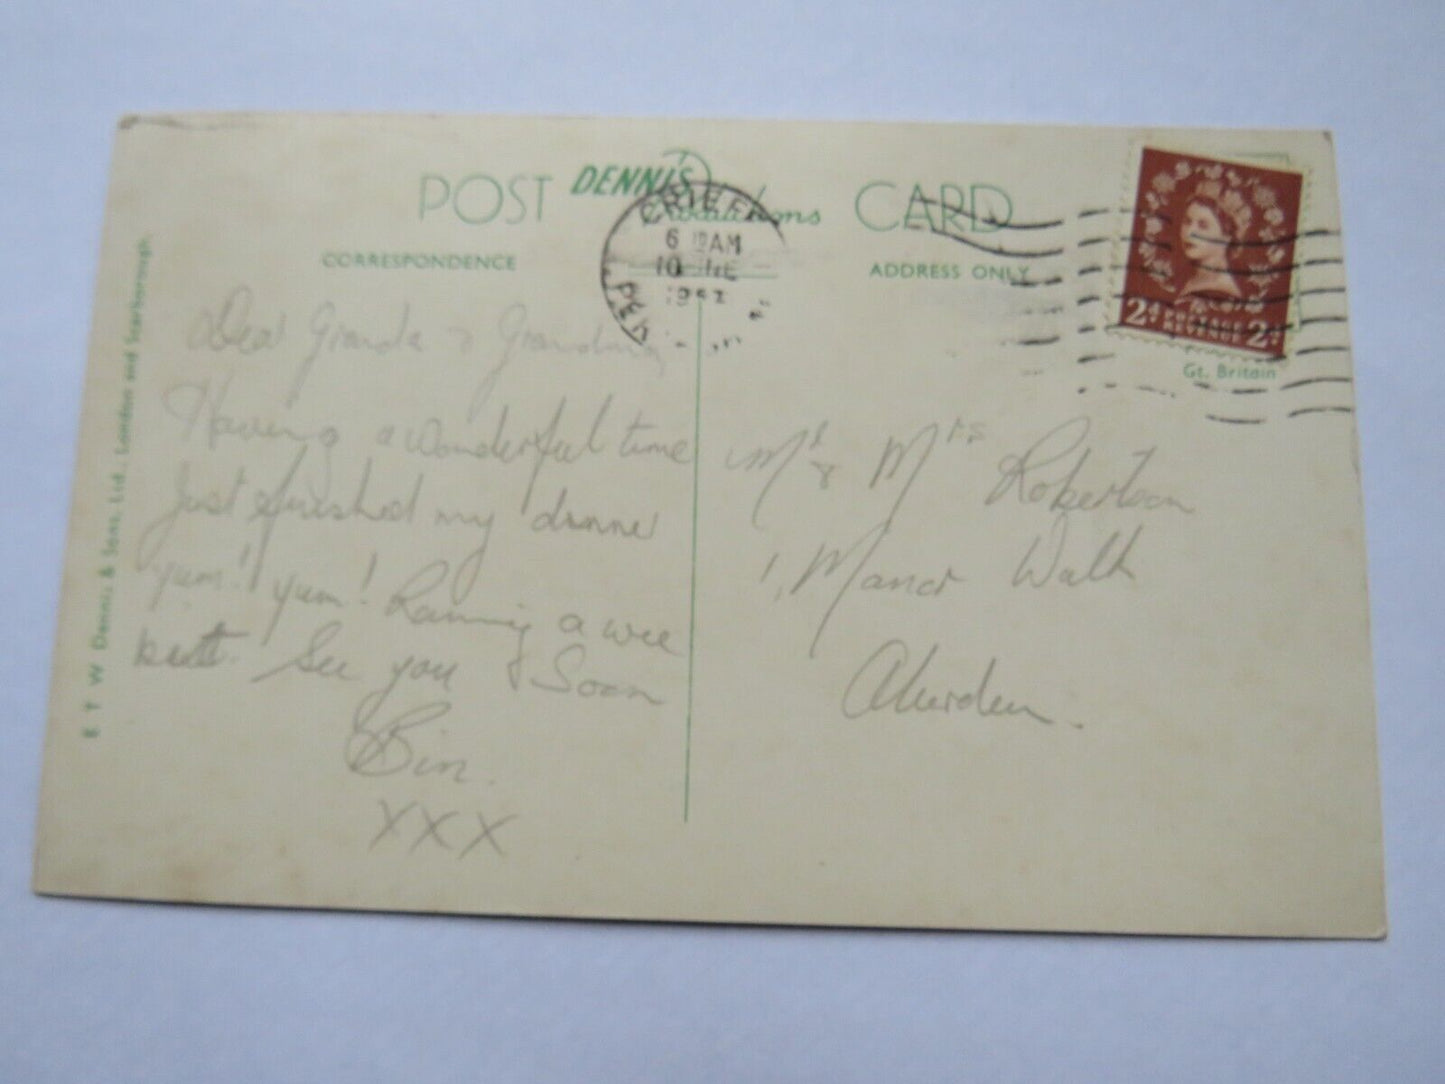 POST DENNIS Productions CARD
CORRESPONDENCE
ADDRESS ONLY
CRIEFF
6 AM
10 NE
195
2D POSTAGE REVENUE 2D
Gt. Britain
E T W Dennis & Sons, Ltd., London and Scarborough.
Dear Granda & Grandma,
Having a wonderful time
Just finished my dinner
yum! yum! Raining a wee
bitt. See you Soon
XXX
Mr & Mrs Robertson
1, Manor Walk
Aberdeen.